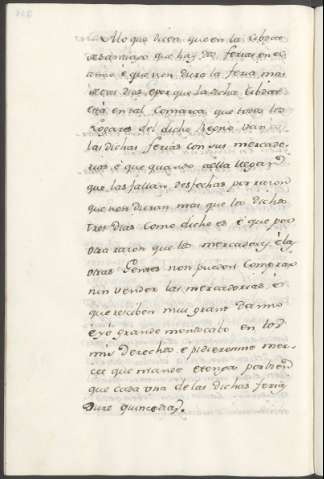 Alo que dicen, que en la Cibdat
de Santiago que hay dos ferias en el
año, é que non dura la feria mas
de tres dias, é por que la dicha Cibdat
está en tal Comarca, que todos los
logares del dicho Regno van á
las dichas ferias con sus mercade-
rias, é que quando aella llegan
que las fallan desfechas por razon
que non duran mas que los dichos
tres dias como dicho es, é que por
esta razon que los mercaderes, é las
otras Gentes non pueden Comprar
nin vender las mercadorias, é
que reciben muy grant danno
é yo grande menoscabo en los
mis derechos, é pidieronme mer-
cet que mande é tenga por bien
que cada una de las dichas ferias
dure quince dias.